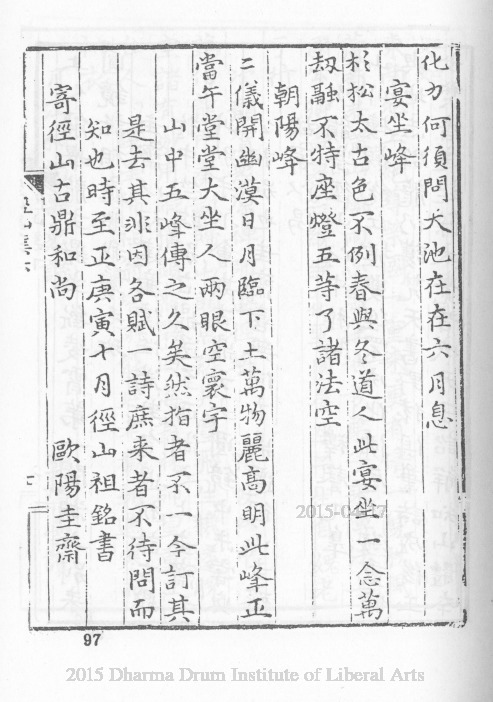 化力何須問天池在在六月息
宴坐峰
杉松太古色不例春與冬道人此宴坐一念萬
劫融不特座燈五等了諸法空
朝陽峰
二儀開幽漠日月臨下土萬物麗髙明此峰正
當午堂堂大坐人兩眼空寰宇
山中五峰傳之久矣然指者不一今訂其
是去其非因各賦一詩庶来者不待問而
知也時至正庚寅十月徑山祖銘書
寄徑山古鼎和尚 歐陽圭齋
97
2015-04-17
2015 Dharma Drum Institute of Liberal Arts